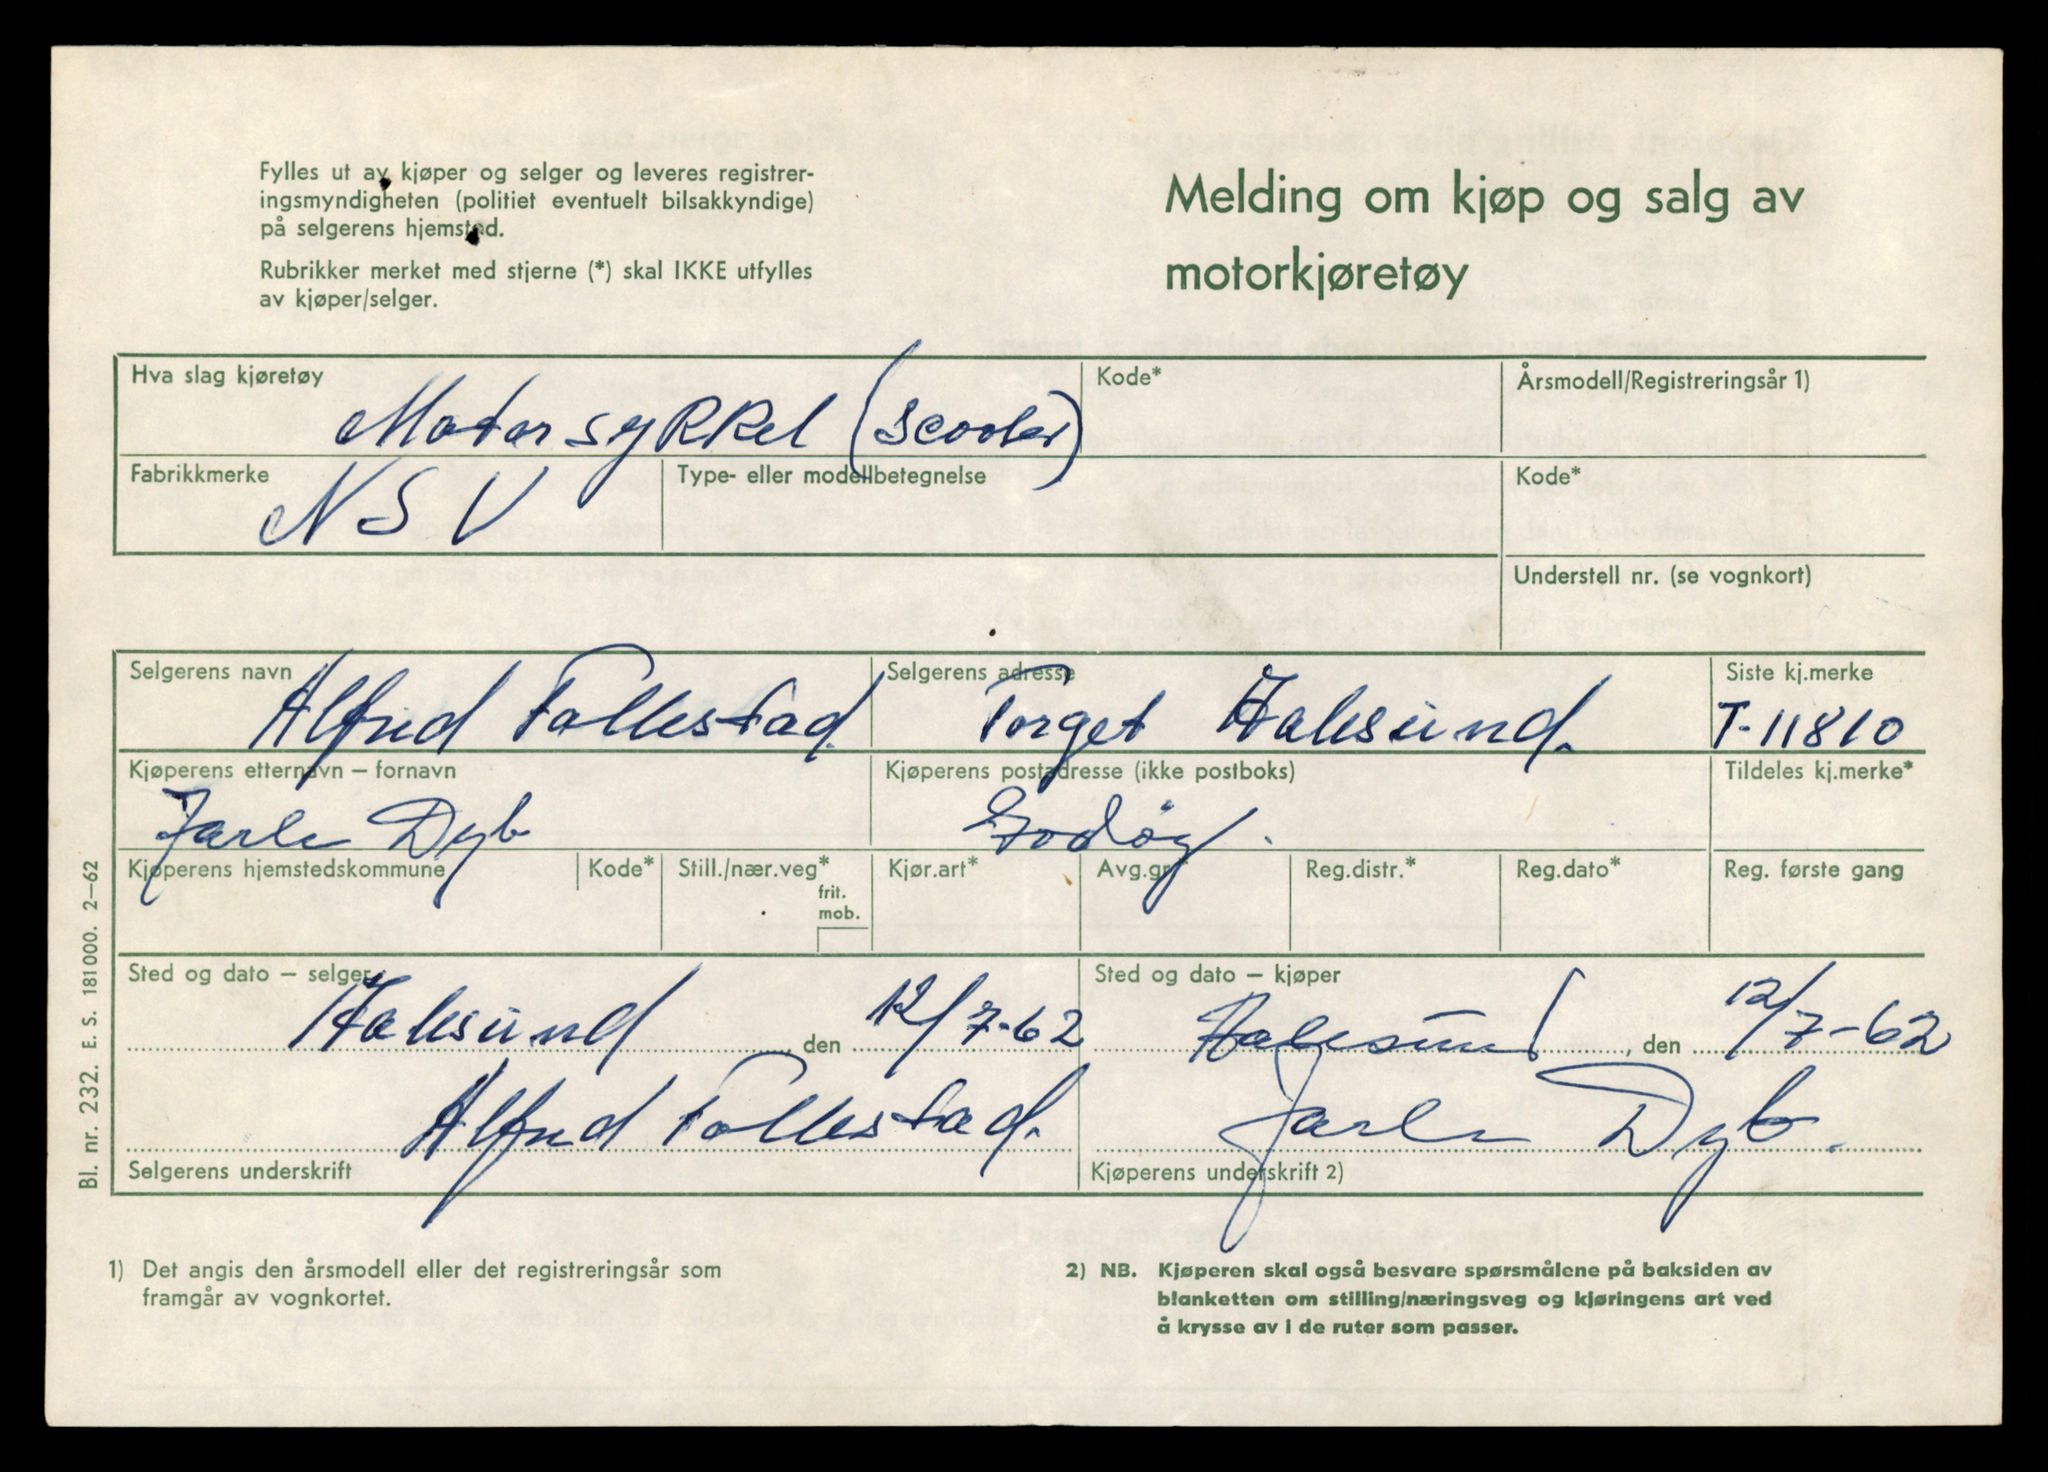 Fylles ut av kjøper og selger og leveres registrer-
ingsmyndigheten (politiet eventuelt bilsakkyndige)
på selgerens hjemsted.
Rubrikker merket med stjerne (*) skal IKKE utfylles
av kjøper/selger.
Melding om kjøp og salg av
motorkjøretøy
Hva slag kjøretøy
Motorsykkel (scooter)
Kode*
Årsmodell/Registreringsår 1)
Fabrikkmerke
NSV
Type- eller modellbetegnelse
Kode*
Understell nr. (se vognkort)
Selgerens navn
Alfred Follestad.
Selgerens adresse
Torget Aalesund.
Siste kj.merke
T-11810
Kjøperens etternavn – fornavn
Jarle Dyb
Kjøperens postadresse (ikke postboks)
Godøy.
Tildeles kj.merke*
Kjøperens hjemstedskommune
Kode*
Still./nær.veg*
frit.
mob.
Kjør.art*
Avg.gr
Reg.distr.*
Reg.dato*
Reg. første gang
Sted og dato – selger
Aalesund den 12/7-62
Sted og dato – kjøper
Aalesund, den 12/7-62
Alfred Follestad.
Selgerens underskrift
Jarle Dyb.
Kjøperens underskrift 2)
Bl. nr. 232. E. S. 181000. 2–62
1) Det angis den årsmodell eller det registreringsår som
framgår av vognkortet.
2) NB. Kjøperen skal også besvare spørsmålene på baksiden av
blanketten om stilling/næringsveg og kjøringens art ved
å krysse av i de ruter som passer.